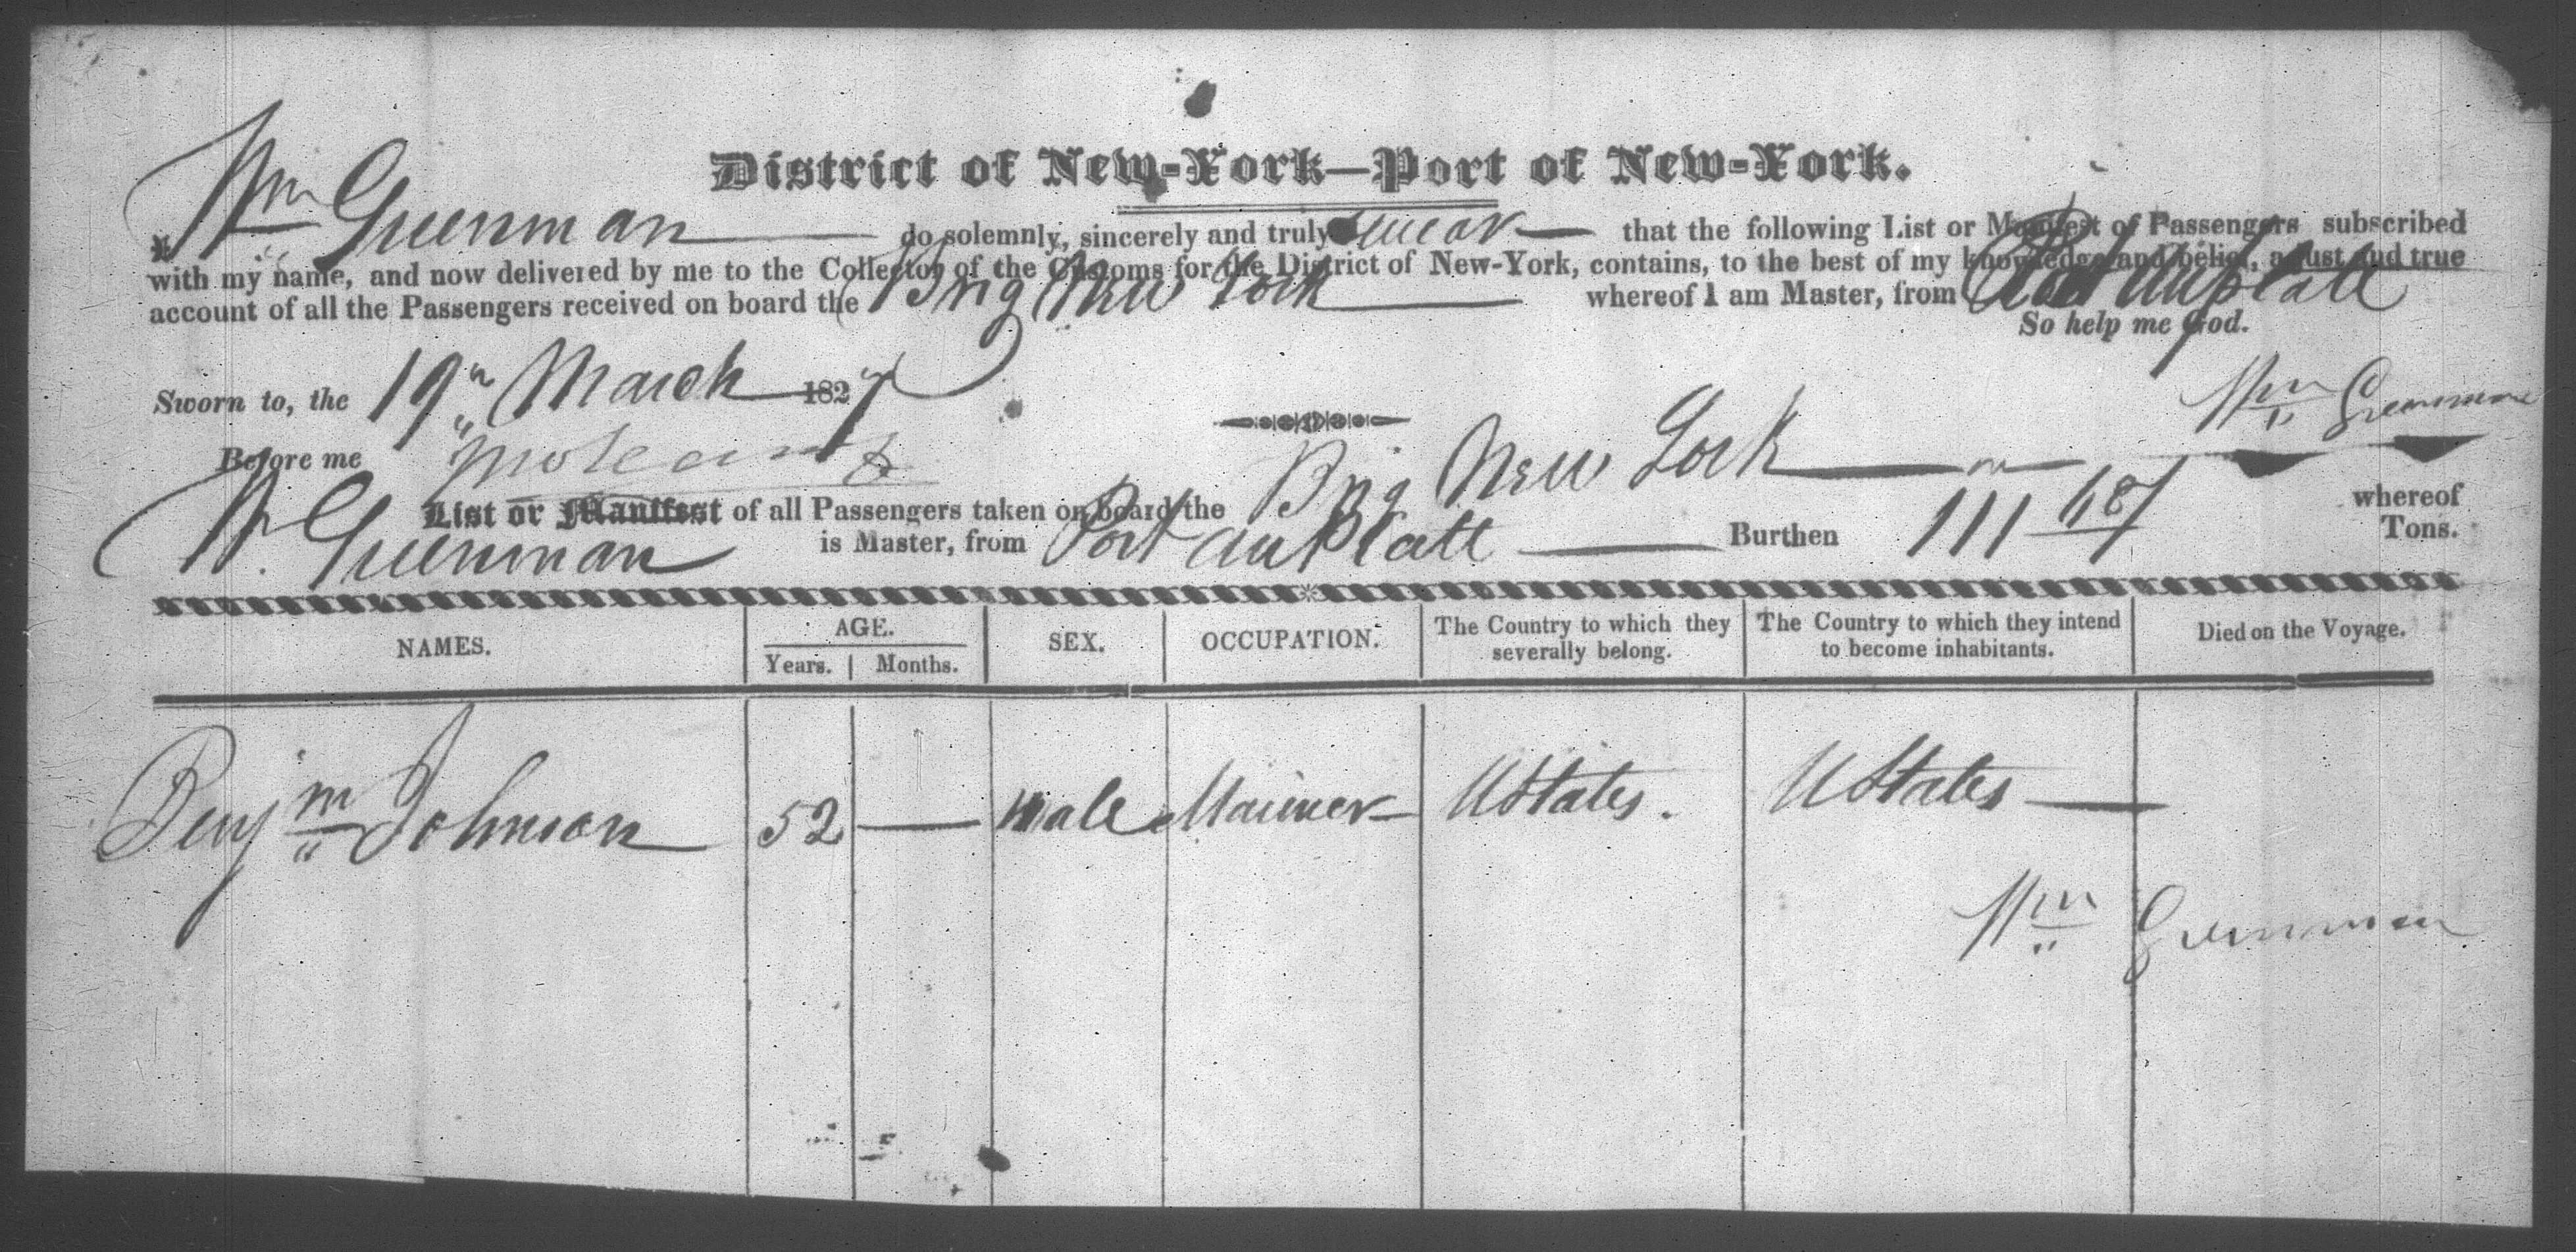 District of New-York—Port of New-York.
I, Wm Greenman do solemnly, sincerely and truly swear that the following List or Manifest of Passengers subscribed
with my name, and now delivered by me to the Collector of the Customs for the District of New-York, contains, to the best of my knowledge and belief, a just and true
account of all the Passengers received on board the Brig New York whereof I am Master, from Port au platt
So help me God.
Sworn to, the 19th March 1827
Wm Greenman
Before me
List or Manifest of all Passengers taken on board the Brig New York whereof
W. Greenman is Master, from Port au Platt Burthen 111 Tons.
NAMES. AGE. SEX. OCCUPATION. The Country to which they severally belong. The Country to which they intend to become inhabitants. Died on the Voyage.
Years. Months.
Benjm Johnson 52 — Male Mariner U States. U States
Wm Greenman